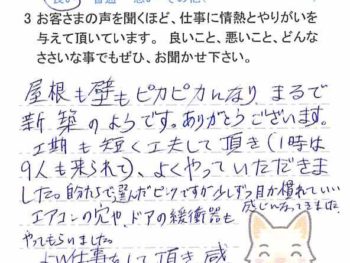 良い 普通 悪い その他
3 お客さまの声を聞くほど、仕事に情熱とやりがいを
与えて頂いています。 良いこと、悪いこと、どんな
ささいな事でもぜひ、お聞かせ下さい。
屋根も壁もピカピカになり、まるで
新築のようです。ありがとうございます。
工期も短く工夫して頂き(1時は
9人も来られて)、よくやっていただきま
した。自分たちで選んだピンクですが少しずつ目が慣れていい
感じになってきました。
エアコンの穴や、ドアの緩衝器も
やってもらいました。
よい仕事をして頂き感